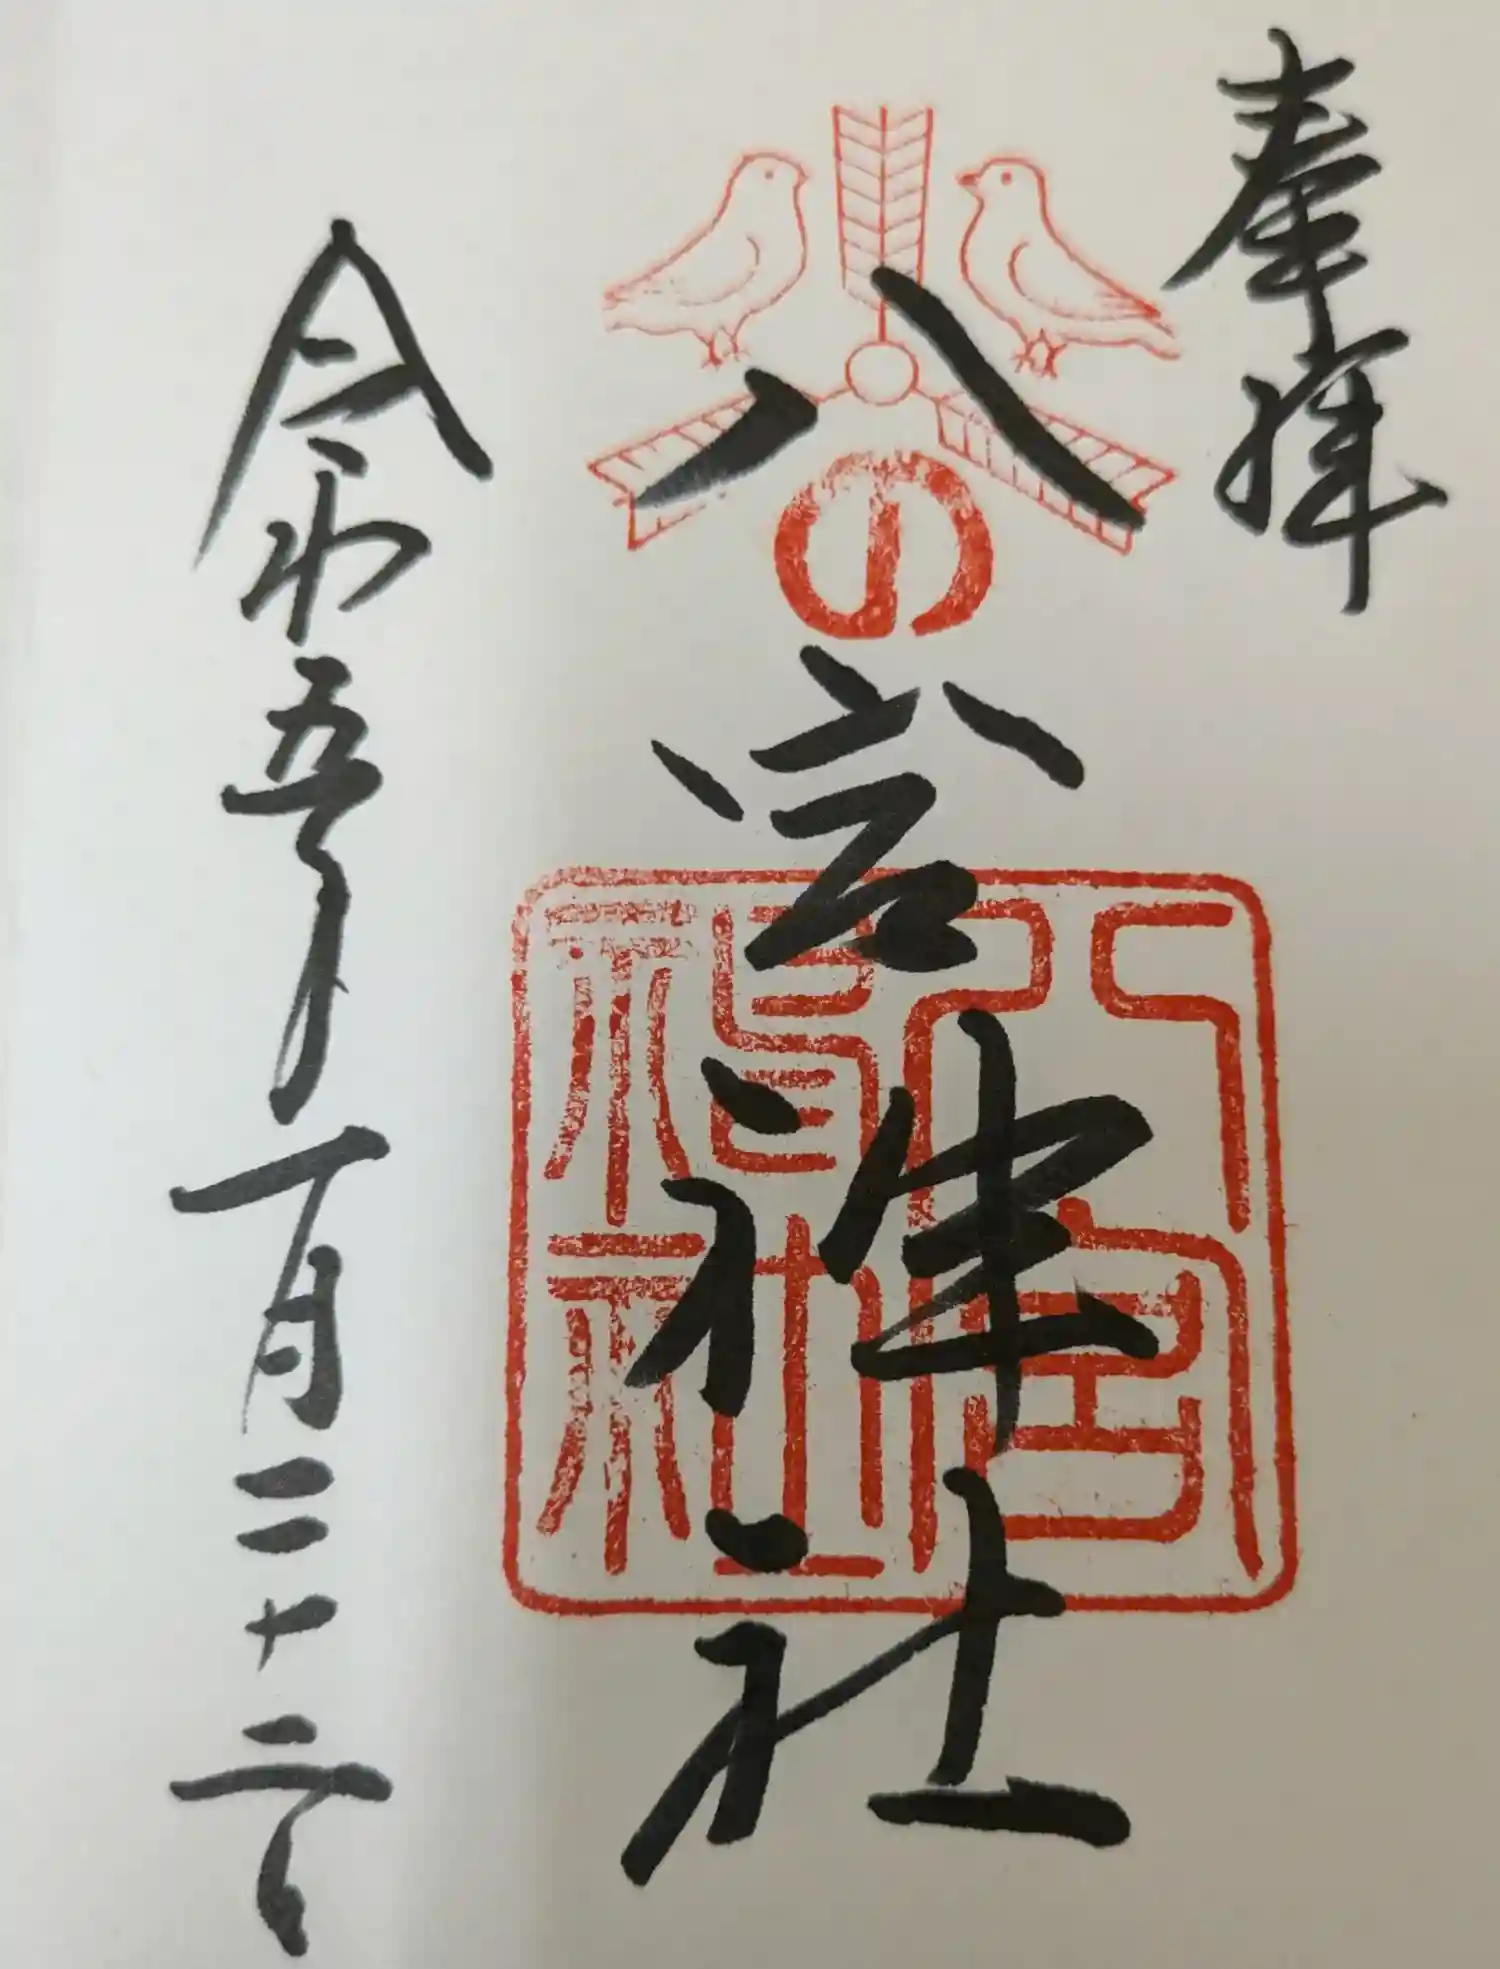 奉拝
八の宮神社
八宮神社
令和五年一月二十二日